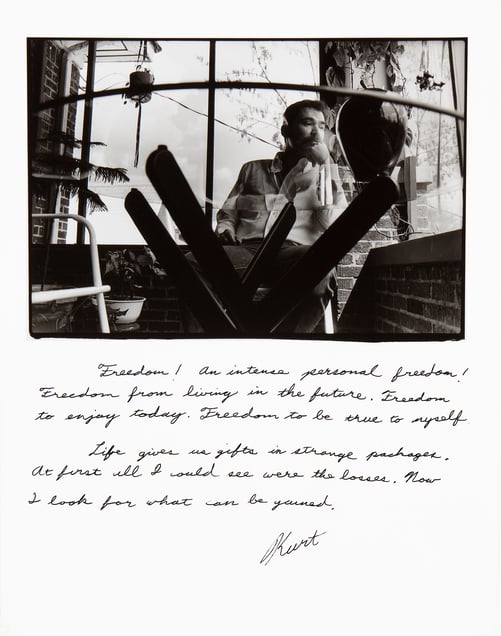 Freedom! An intense personal freedom!
Freedom from living in the future. Freedom
to enjoy today. Freedom to be true to myself.
Life gives us gifts in strange packages.
At first all I could see were the losses. Now
I look for what can be gained.
Kurt